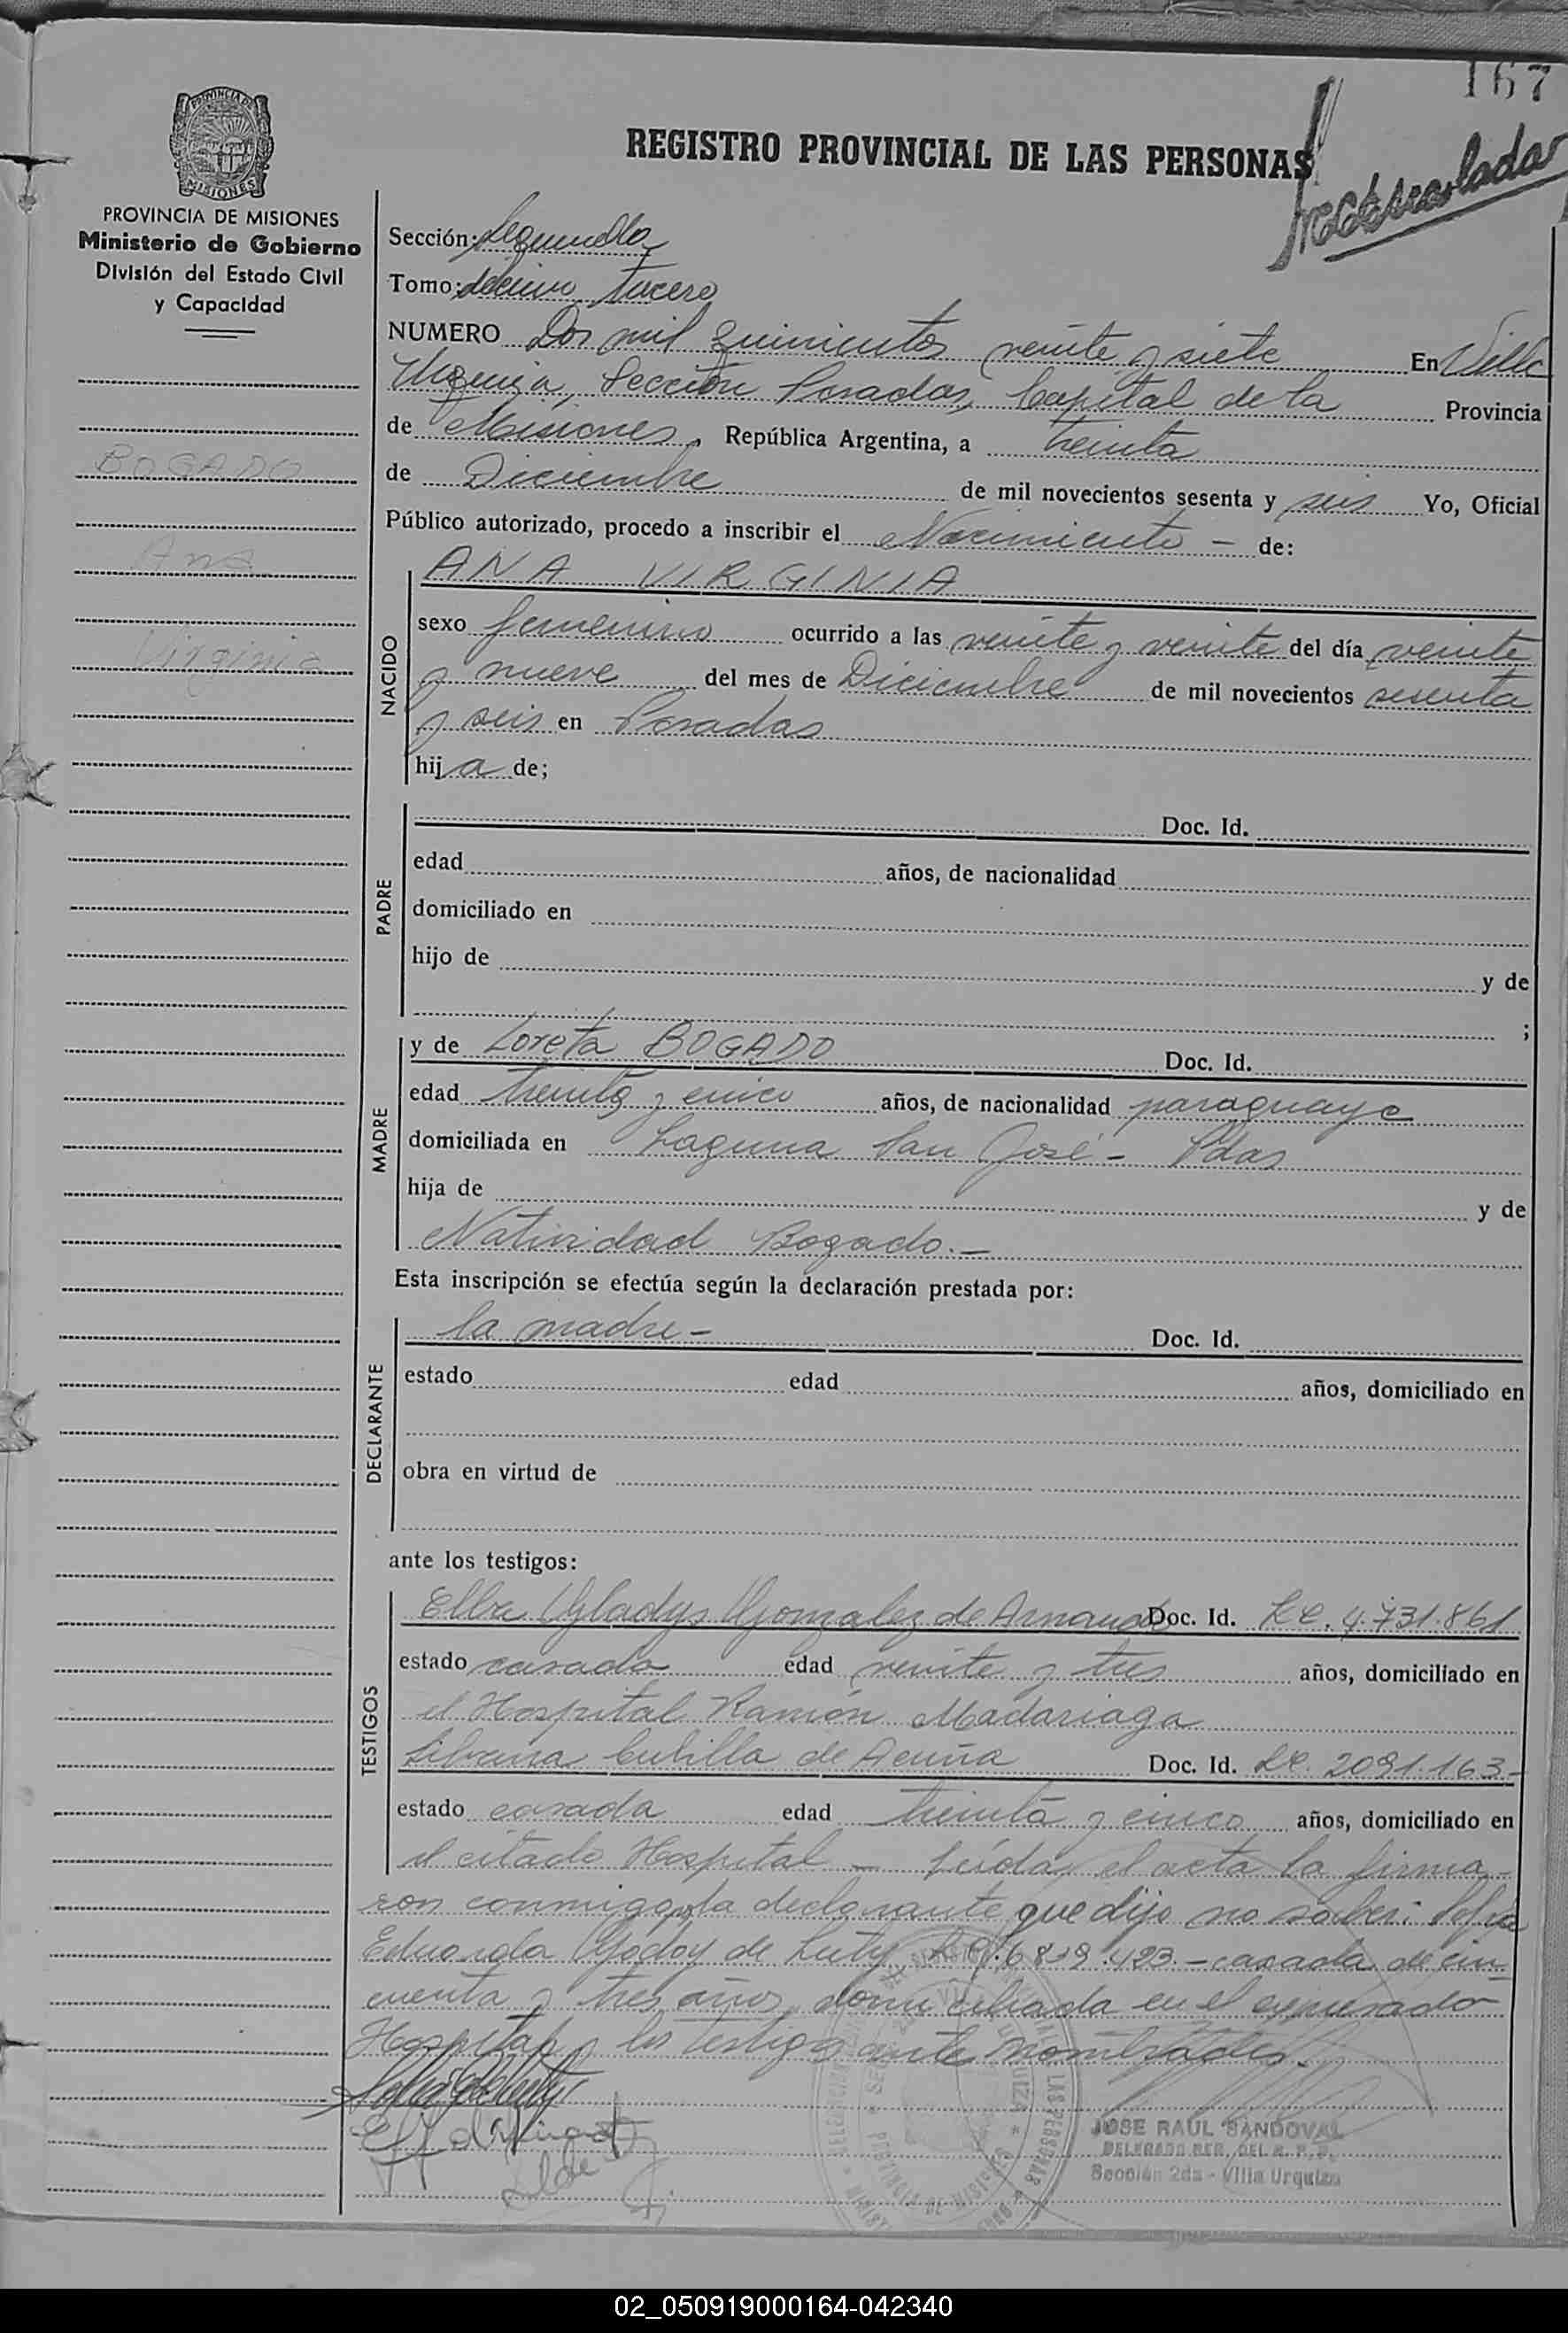 167
PROVINCIA DE
MISIONES
PROVINCIA DE MISIONES
Ministerio de Gobierno
División del Estado Civil
y Capacidad
REGISTRO PROVINCIAL DE LAS PERSONAS
Sección: Segunda
Tomo: décimo tercero
NUMERO Dos mil quinientos veinte y siete En Villa
Urquiza, Sección Posadas, Capital de la Provincia
de Misiones, República Argentina, a treinta
de Diciembre de mil novecientos sesenta y seis Yo, Oficial
Público autorizado, procedo a inscribir el Nacimiento - de:
BOGADO
Ana
Virginia
NACIDO
ANA VIRGINIA
sexo femenino ocurrido a las veinte y veinte del día veinte
y nueve del mes de Diciembre de mil novecientos sesenta
y seis en Posadas
hija de;
PADRE
Doc. Id.
edad años, de nacionalidad
domiciliado en
hijo de y de
;
MADRE
y de Loreta BOGADO Doc. Id.
edad treinta y cinco años, de nacionalidad paraguaya
domiciliada en Laguna San José - Pdas
hija de y de
Natividad Bogado.-
Esta inscripción se efectúa según la declaración prestada por:
DECLARANTE
la madre- Doc. Id.
estado edad años, domiciliado en
obra en virtud de
ante los testigos:
TESTIGOS
Elba Gladys Gonzalez de Doc. Id. LC. 4.731.861
estado casada edad veinte y tres años, domiciliado en
el Hospital Ramón Madariaga
de Acuña Doc. Id. LC. 2091.163-
estado casada edad treinta y cinco años, domiciliado en
el citado Hospital - Leída el acta la firma-
ron conmigo, la declarante que dijo no saber:
Eduarda Godoy de casada de cin-
cuenta y tres años, domiciliada en el
Hospital y los testigos ante nombrados.
JOSE RAUL SANDOVAL
Sección 2da - Villa Urquiza
02_050919000164-042340